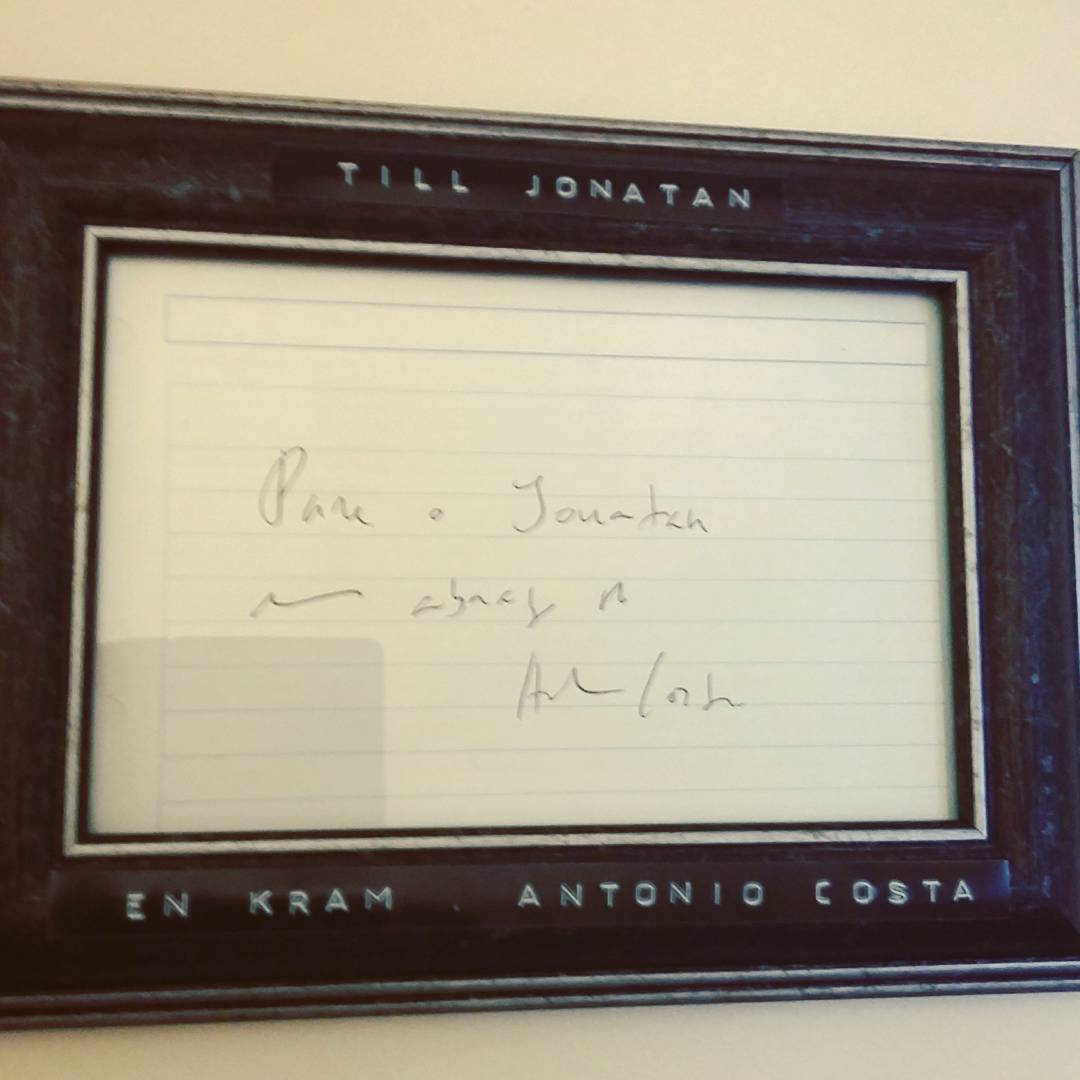 TILL JONATAN
Para o Jonatan
um abraço do
António Costa
EN KRAM . ANTONIO COSTA